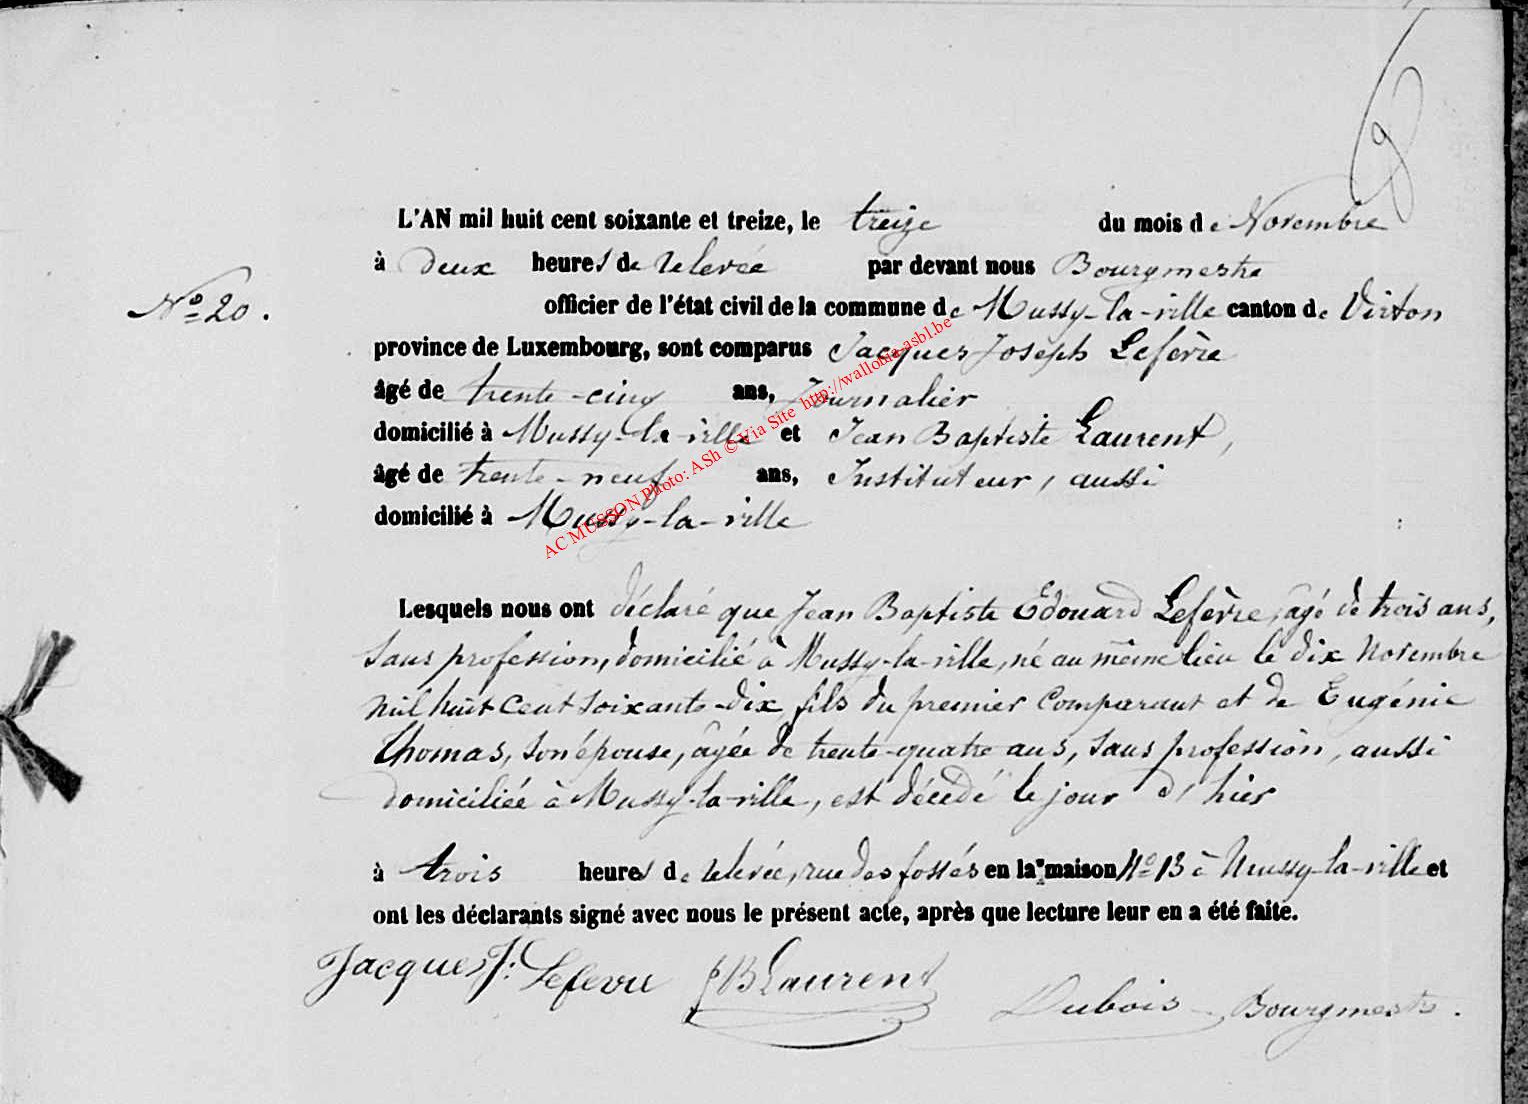 6
L'AN mil huit cent soixante et treize, le treize du mois de Novembre
à deux heures de relevée par devant nous Bourgmestre
No 20.
officier de l'état civil de la commune de Mussy-la-ville canton de Virton
province de Luxembourg, sont comparus Jacques Joseph Lefèvre
âgé de trente-cinq ans, Journalier
domicilié à Mussy-la-ville et Jean Baptiste Laurent,
âgé de trente-neuf ans, Instituteur, aussi
domicilié à Mussy-la-ville
AC MUSSON Photo: ASh © Via Site http://wallonia-asbl.be
Lesquels nous ont déclaré que Jean Baptiste Edouard Lefèvre, âgé de trois ans,
sans profession, domicilié à Mussy-la-ville, né au même lieu le dix Novembre
mil huit cent soixante-dix, fils du premier comparant et de Eugénie
Thomas, son épouse, âgée de trente-quatre ans, sans profession, aussi
domiciliée à Mussy-la-ville, est décédé le jour d'hier
à trois heures de relevée, rue des fossés en la maison No 13 à Mussy-la-ville et
ont les déclarants signé avec nous le présent acte, après que lecture leur en a été faite.
Jacques J. Lefevre JBLaurent
Dubois Bourgmestre.